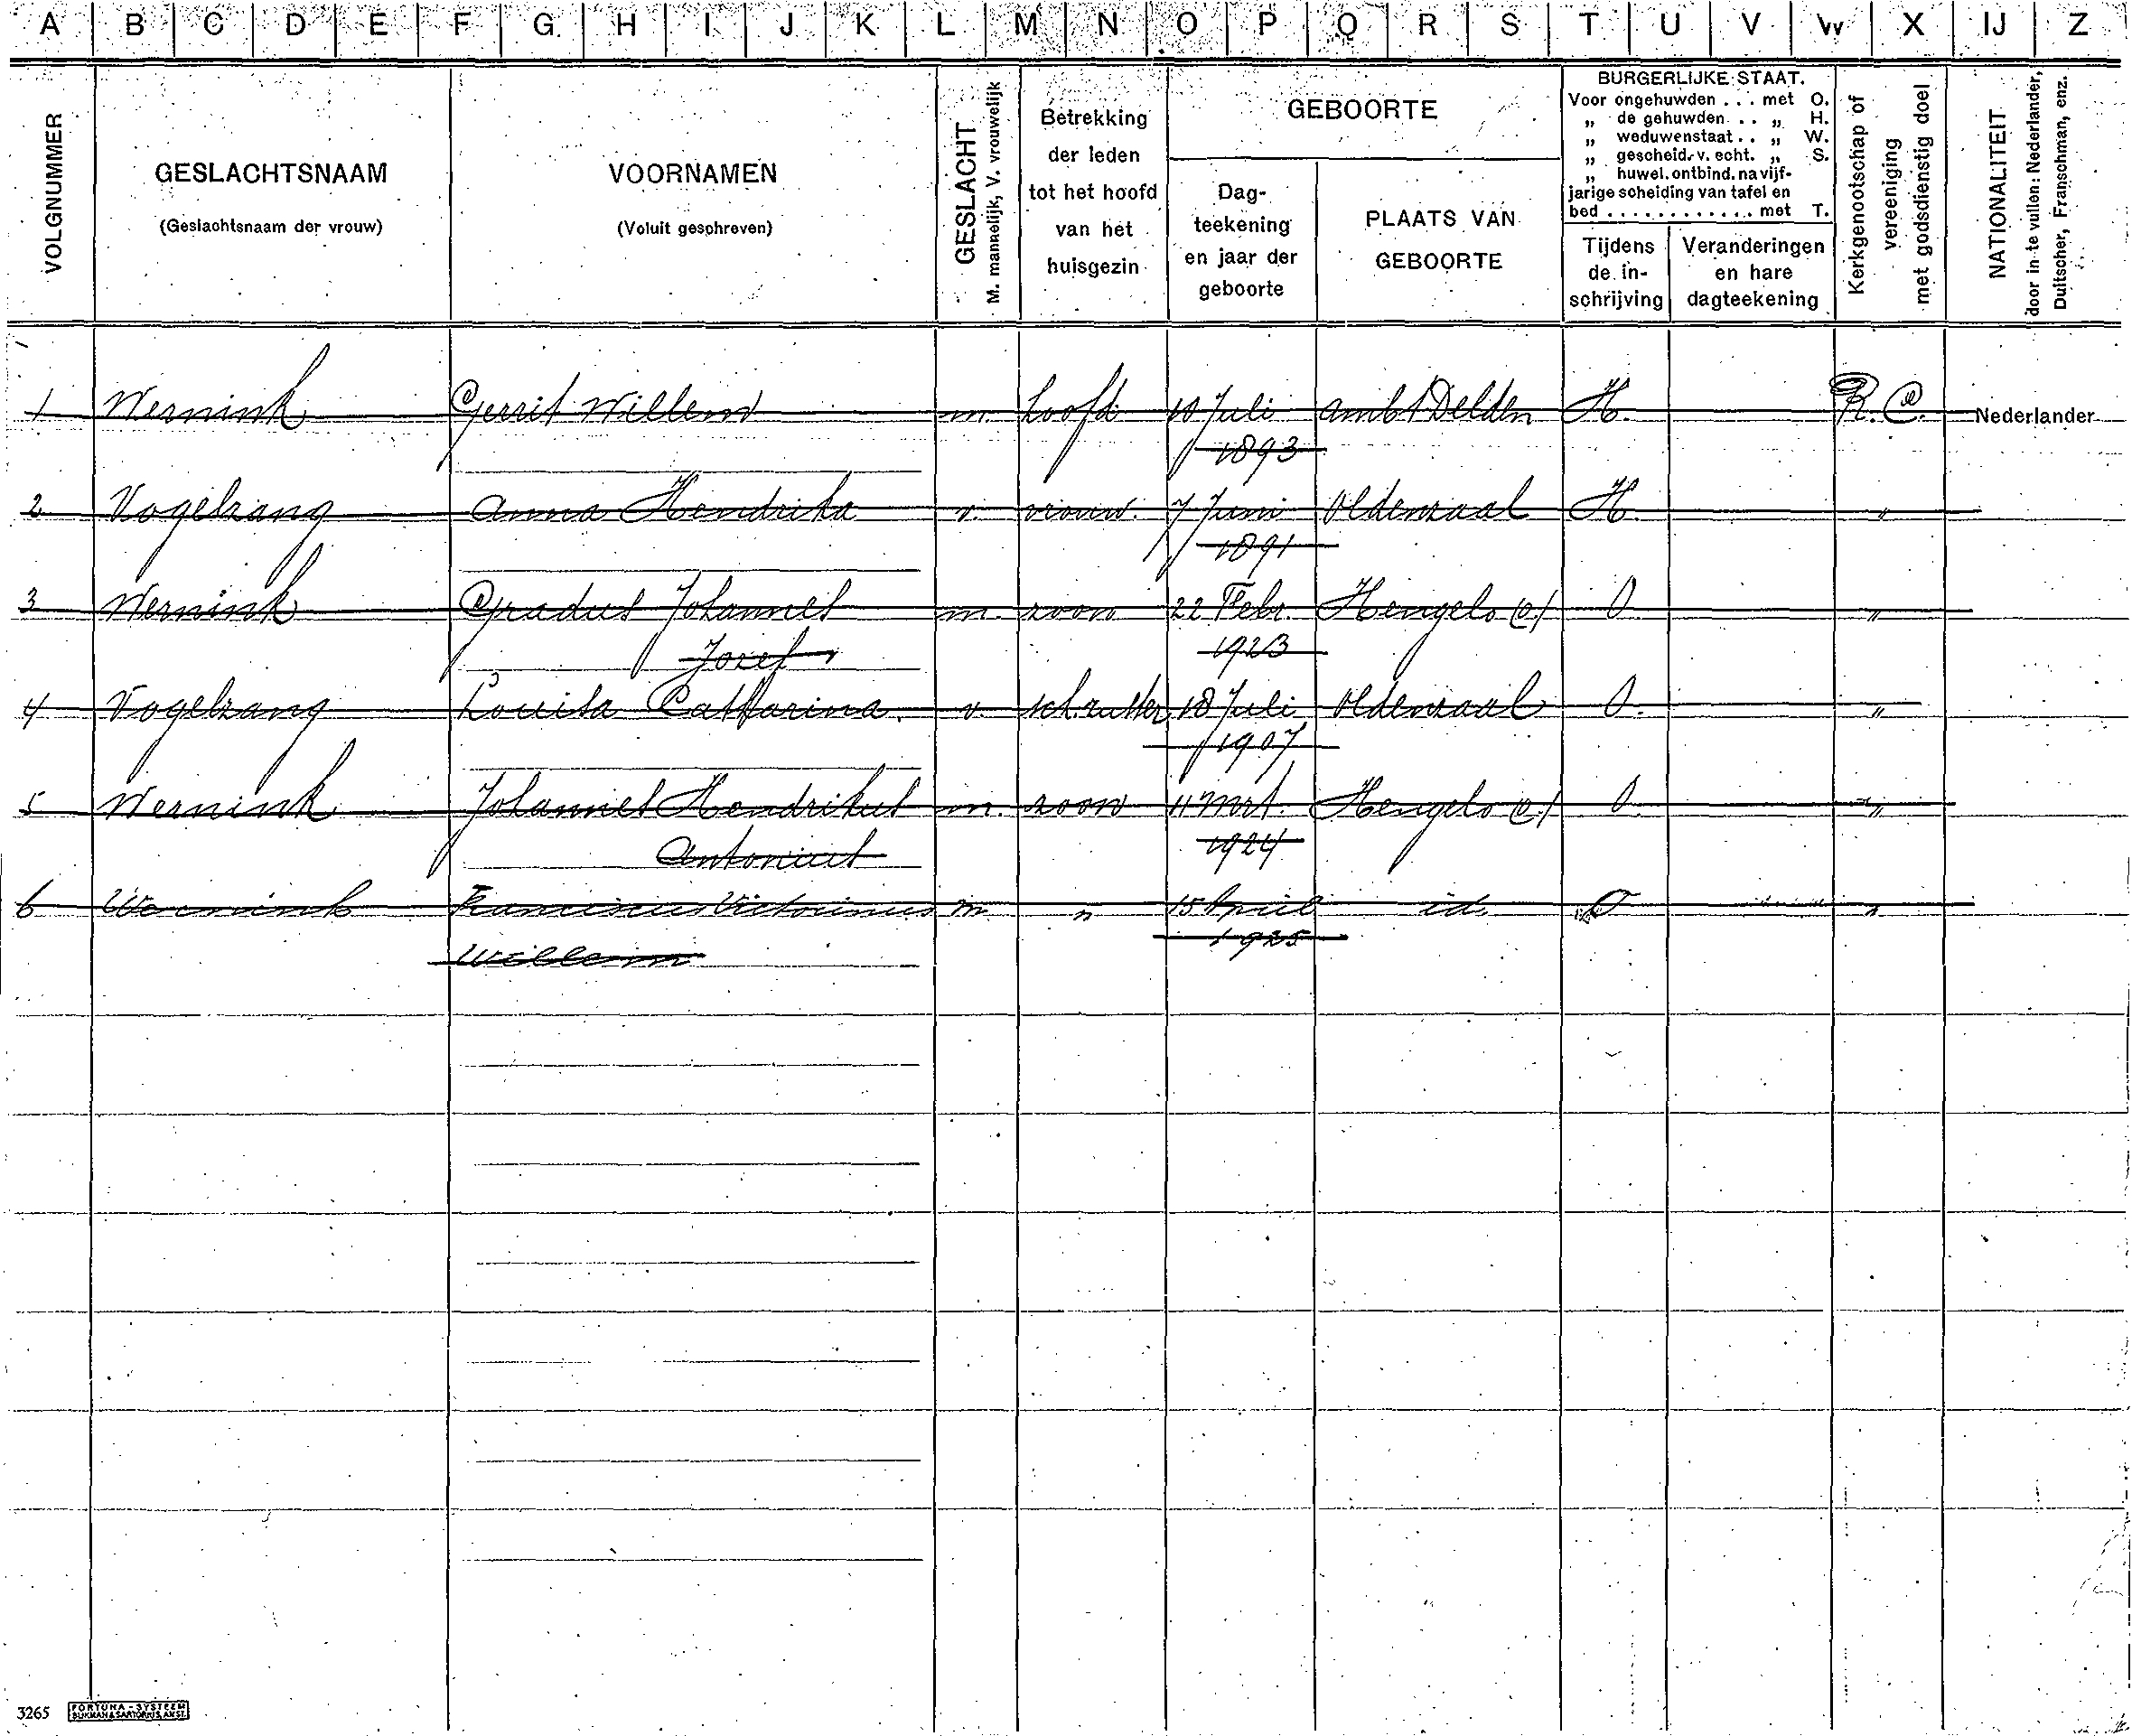 A B C D E F G H I J K L M N O P Q R S T U V W X IJ Z
VOLGNUMMER
GESLACHTSNAAM
(Geslachtsnaam der vrouw)
VOORNAMEN
(Voluit geschreven)
GESLACHT
M. mannelijk, V. vrouwelijk
Betrekking
der leden
tot het hoofd
van het
huisgezin
GEBOORTE
Dag-
teekening
en jaar der
geboorte
PLAATS VAN
GEBOORTE
BURGERLIJKE STAAT.
Voor ongehuwden . . . met O.
„ de gehuwden . . „ H.
„ weduwenstaat . . „ W.
„ gescheid. v. echt. „ S.
„ huwel. ontbind. na vijf-
jarige scheiding van tafel en
bed . . . . . . . . . . . . met T.
Tijdens
de in-
schrijving
Veranderingen
en hare
dagteekening
Kerkgenootschap of
vereeniging
met godsdienstig doel
NATIONALITEIT
door in te vullen: Nederlander,
Duitscher, Franschman, enz.
1 Wernink Gerrit Willem m. hoofd 10 Juli Ambt Delden H. R.C. Nederlander
1893
2 Vogelzang Anna Hendrika v. vrouw. 7 Juni Oldenzaal H. „
1891
3 Wernink Gradus Johannes m. zoon 22 Febr. Hengelo (O.) O. „
Jozef 1923
4 Vogelzang Louisa Catharina. v. sch.zuster 18 Juli Oldenzaal O. „
1907
5 Wernink Johannes Hendrikus m. zoon 11 Mrt. Hengelo (O.) O. „
Antonius 1924
6 Wernink Franciscus Victorinus m „ 15 April id. O „
Willem 1925
3265 FORTUNA-SYSTEEM